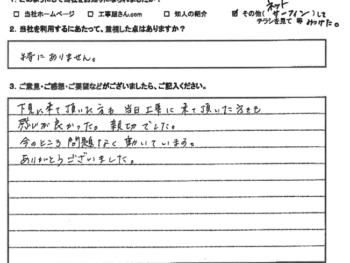 □ 当社ホームページ □ 工事屋さん.com □ 知人の紹介 ☑ その他(ネットサーフィンして
チラシを見て
2. 当社を利用するにあたって、重視した点はありますか?
特にありません。
3. ご意見・ご感想・ご要望などがございましたら、ご記入ください。
下見に来て頂いた方も当日工事に来て頂いた方も
感じが良かった。親切でした。
今のところ問題なく動いています。
ありがとうございました。